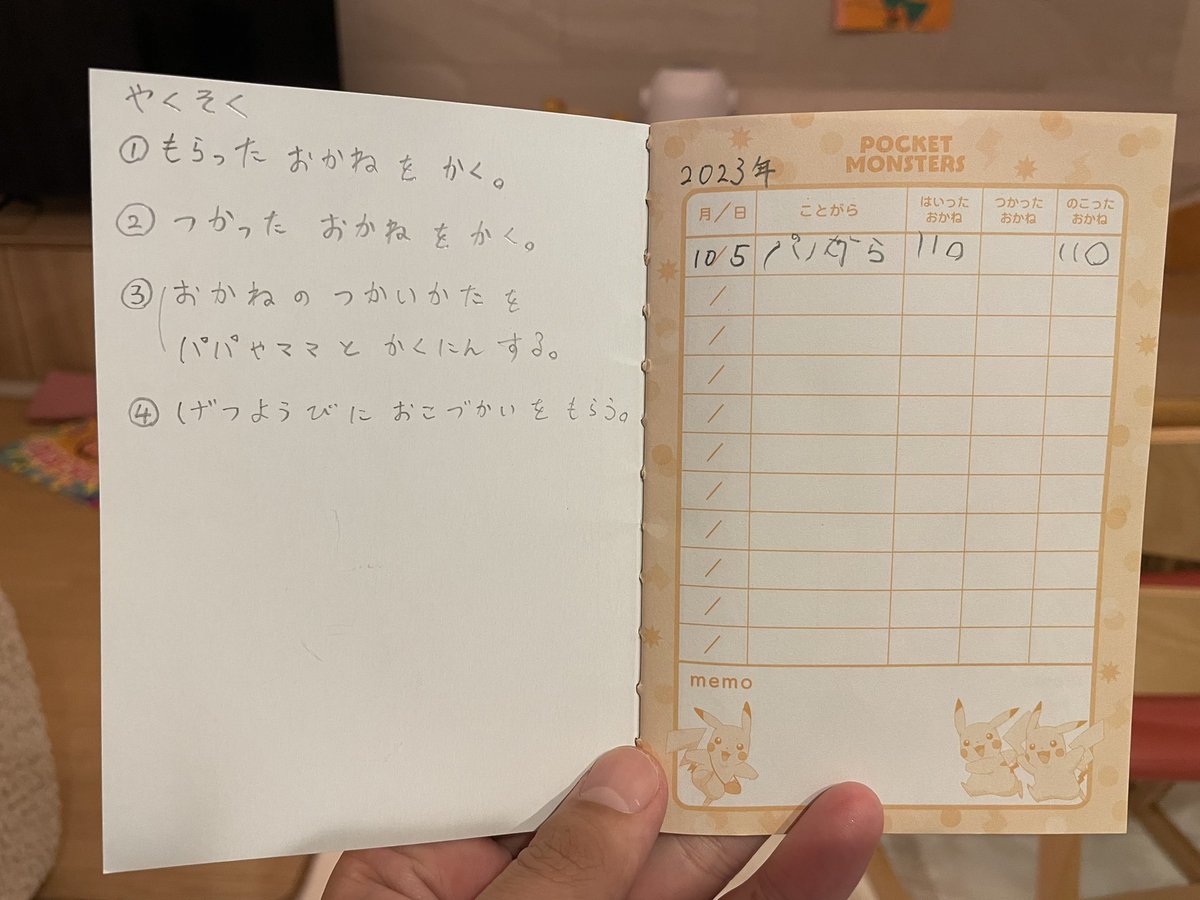 やくそく
①もらった おかねを かく。
②つかった おかねを かく。
③おかねの つかいかたを
パパやママと かくにんする。
④げつようびに おこづかいを もらう。
POCKET
MONSTERS
2023年
月/日 ことがら はいった おかね つかった おかね のこった おかね
10/5 パパから 110 110
/
/
/
/
/
/
/
/
/
/
memo